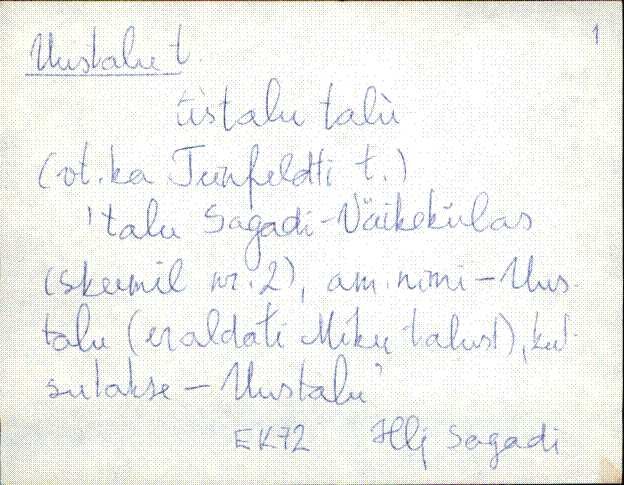 1
Uustalu t.
ūstalu talù
(vt. ka Tiinfeldti t.)
'talu Sagadi-Väikekülas
(skeemil nr. 2), am. nimi - Uus-
talu (eraldati Miku talust), kut-
sutakse - Uustalu'
EK72 Hlj Sagadi